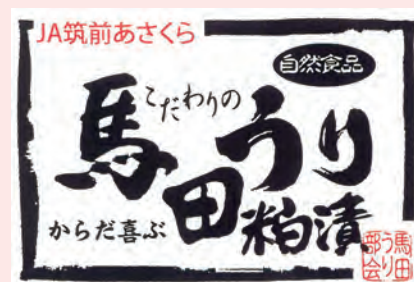 JA筑前あさくら
自然食品
こだわりの
馬田うり
からだ喜ぶ
粕漬
馬田
うり
部会